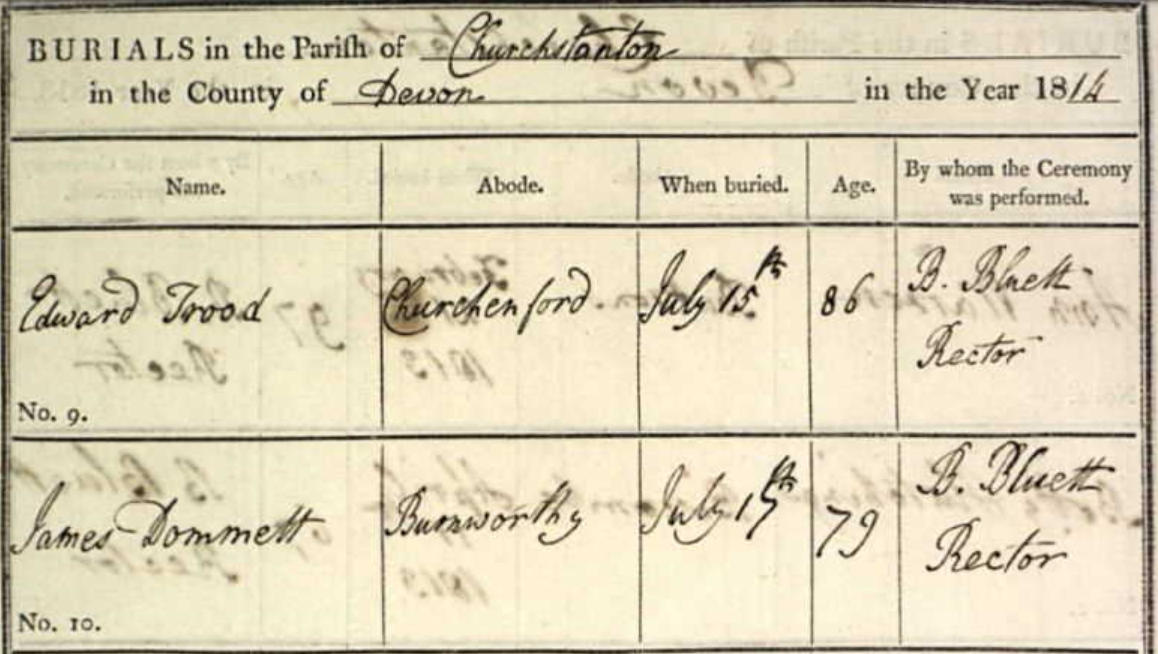 BURIALS in the Parish of Churchstanton
in the County of Devon in the Year 1814
Name. Abode. When buried. Age. By whom the Ceremony was performed.
Edward Trood Churchenford July 15th 86 B. Bluett
Rector
No. 9.
James Dommett Burnworthy July 17th 79 B. Bluett
Rector
No. 10.